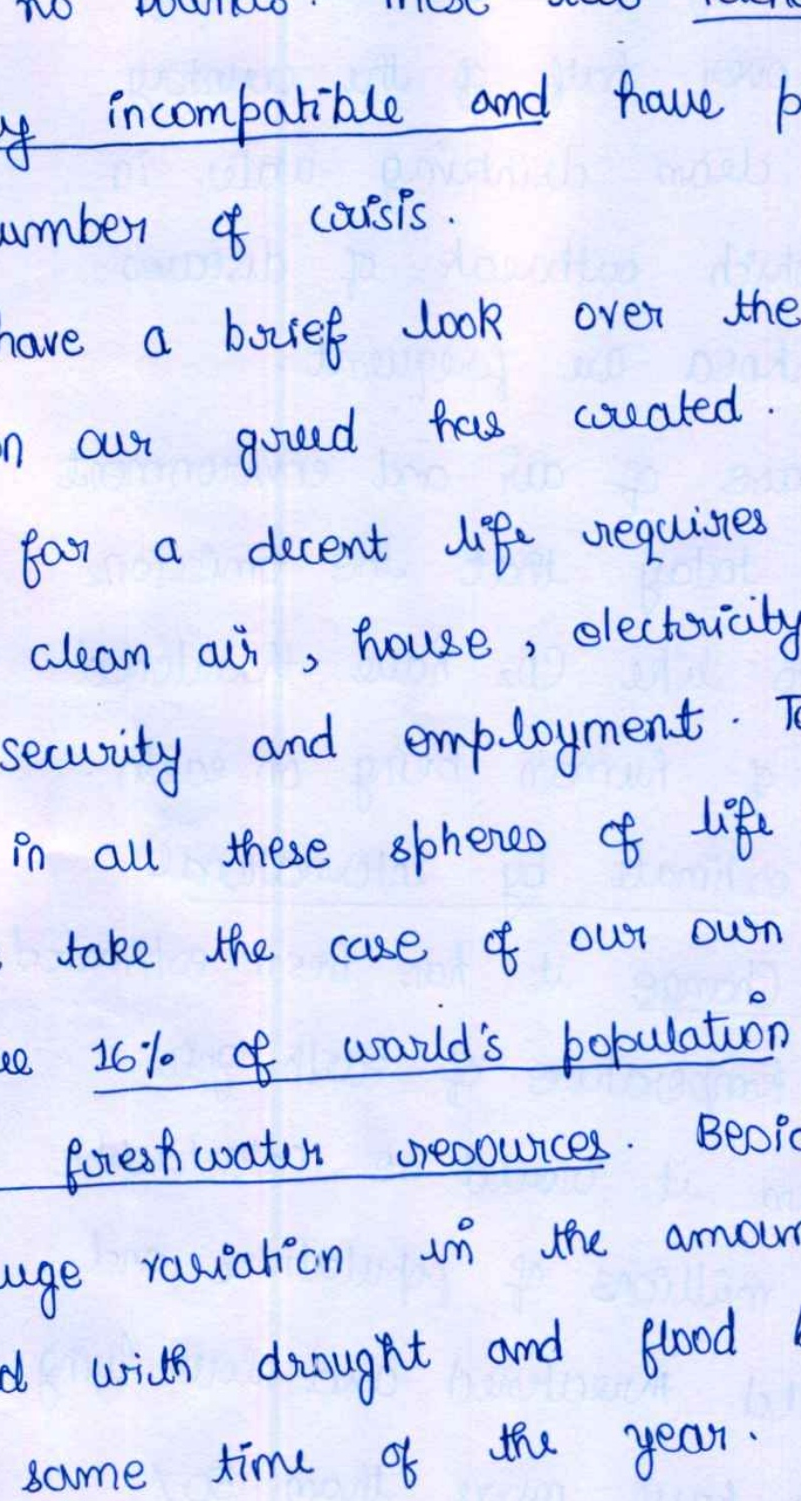 no
y incompatible and have p
umber of crisis.
have a brief look over the
n our greed has created.
for a decent life requires
clean air, house, electricity
security and employment. To
in all these spheres of life
take the case of our own
16% of world's population
freshwater resources. Besid
uge variation in the amoun
d with drought and flood
same time of the year.